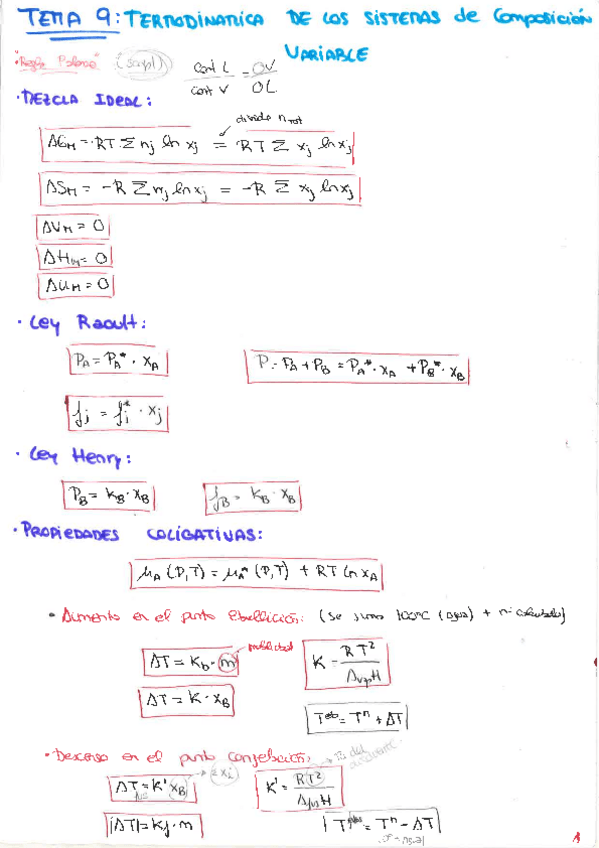 TEMA 9: TERMODINAMICA DE LOS SISTEMAS de Composición
VARIABLE
"Regla Palanca" (scrip!) cant L / cant V = OV / OL
· MEZCLA IDEAL:
divide n tot
ΔGM = RT Σ nj ln xj = RT Σ xj ln xj
ΔSM = -R Σ nj ln xj = -R Σ xj ln xj
ΔVM = 0
ΔHM = 0
ΔUM = 0
· Ley Raoult:
PA = PA* · xA P = PA + PB = PA* · xA + PB* · xB
fj = fj* · xj
· Ley Henry:
PB = KB · XB fB = KB · XB
· PROPIEDADES COLIGATIVAS:
μA (P,T) = μA* (P,T) + RT ln xA
• Aumento en el punto ebullición: (se suma 100ºC (agua) + nº calculado)
molalidad
ΔT = Kb · m K = RT² / ΔvapH
ΔT = K · XB
Teb = Tn + ΔT
• Descenso en el punto congelación:
ΔT = K' xB K' = RT² / ΔfusH
|ΔT| = Kf · m Tfus = Tn - ΔT